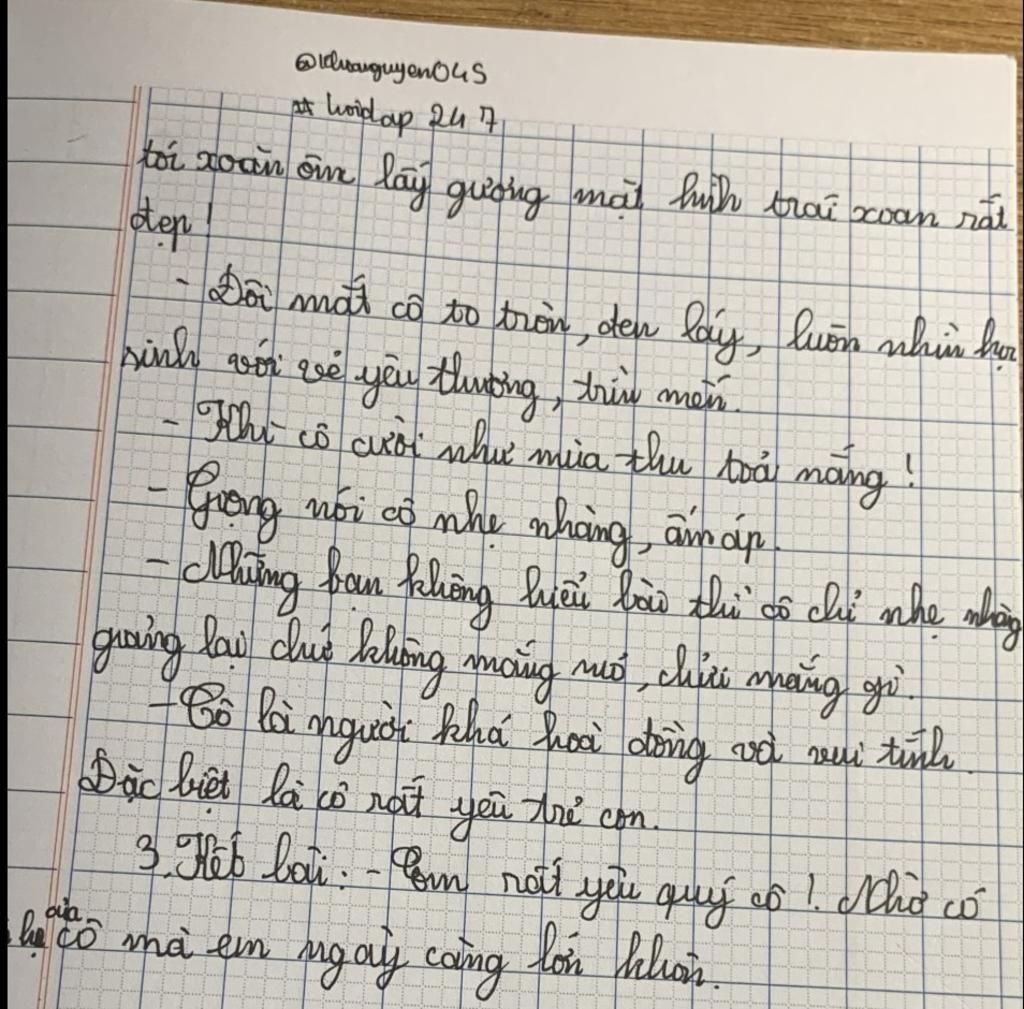 @khuanguyen045
# hoidap 247
tóc xoăn ôm lấy gương mặt hình trái xoan rất
đẹp!
- Đôi mắt cô to tròn, đen láy, luôn nhìn học
sinh với vẻ yêu thương, trìu mến.
- Khi cô cười như mùa thu toả nắng!
- Giọng nói cô nhẹ nhàng, ấm áp.
- Những bạn không hiểu bài thì cô chỉ nhẹ nhàng
giảng lại chứ không mắng mỏ, chửi mắng gì.
- Cô là người khá hoà đồng và vui tính.
Đặc biệt là cô rất yêu trẻ con.
3. Kết bài: - Em rất yêu quý cô! Nhờ có
của
cô mà em ngày càng lớn khôn.